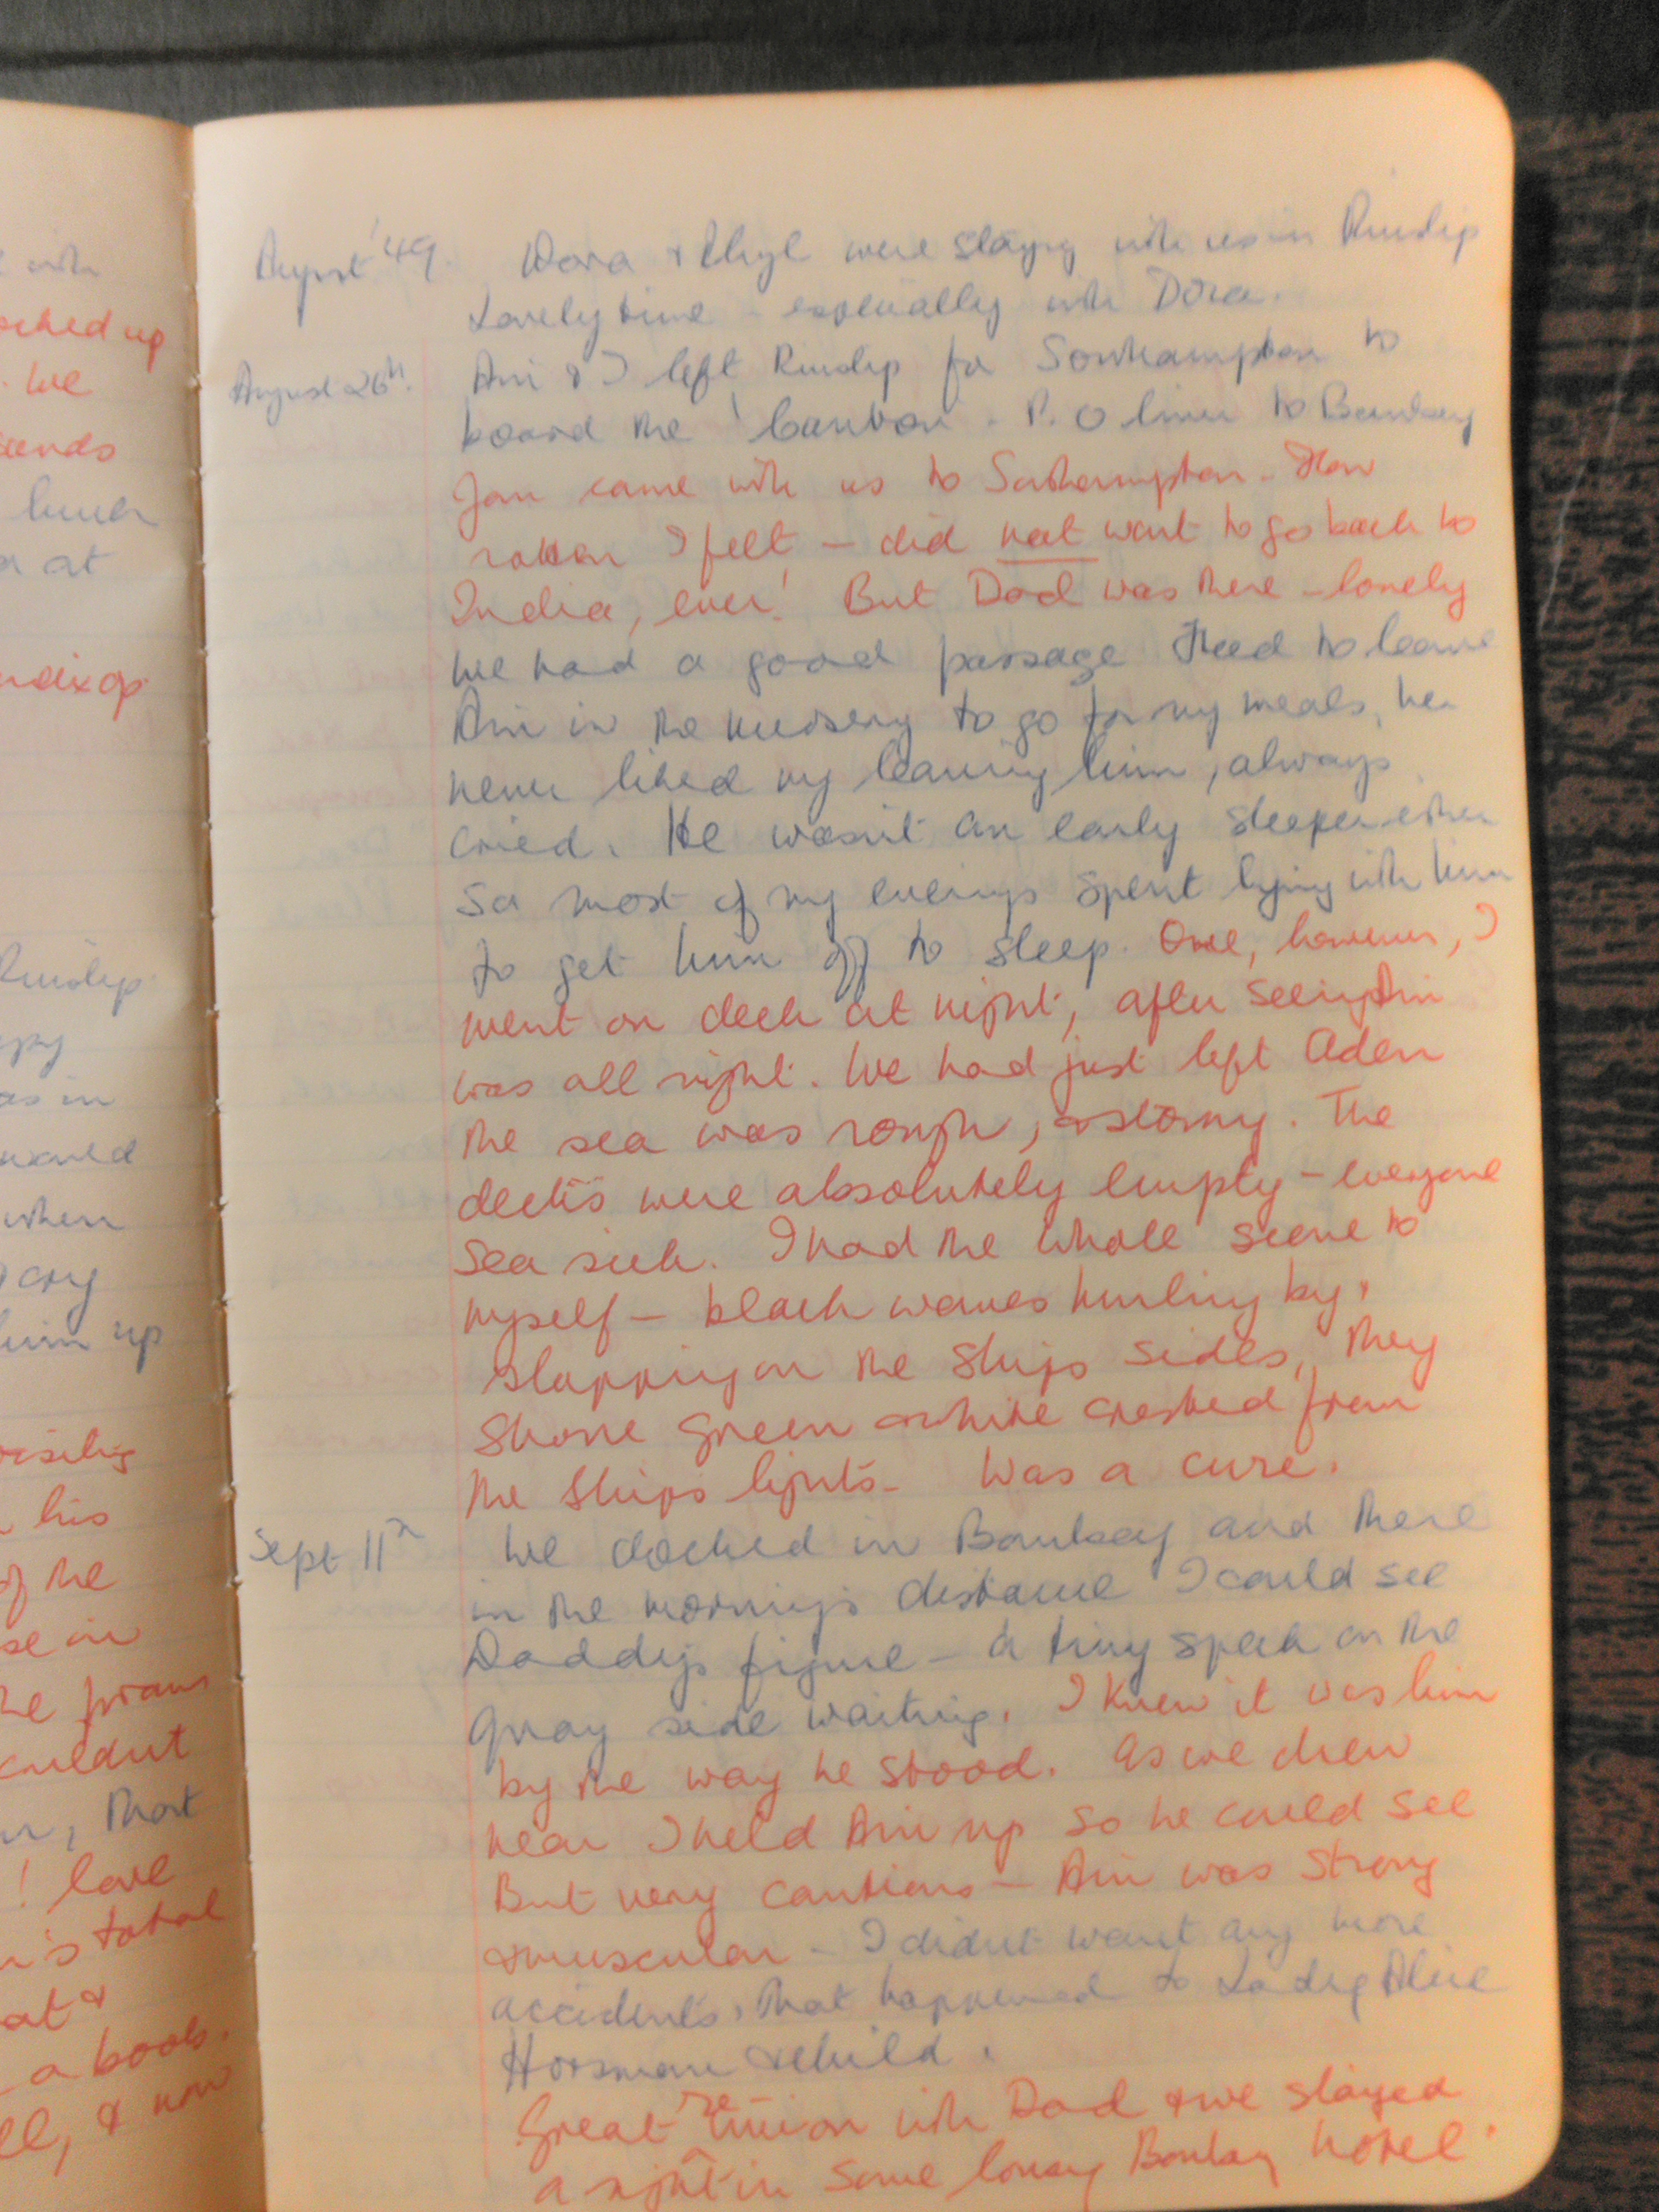 August '49. Dora & Chyl were staying with us in Ruislip
Lovely time - especially with Dora.
August 26th. Ani & I left Ruislip for Southampton to
board the 'Canton - P. O liner to Bombay
Jan came with us to Southampton. How
rotten I felt - did not want to go back to
India, ever! But Dad was there - lonely
We had a good passage Had to leave
Ani in the nursery to go for my meals, he
never liked my leaving him, always
cried. He wasn't an early sleeper either
so most of my evenings spent lying with him
to get him off to sleep. One, however, I
went on deck at night, after seeing Ani
was all right. We had just left Aden
the sea was rough, & stormy. The
decks were absolutely empty - everyone
sea sick. I had the whole scene to
myself - black waves hurling by,
slapping on the ships sides, they
shone green & white crested from
the ships lights - Was a cure.
Sept 11th We docked in Bombay and there
in the morning's distance I could see
Daddy's figure - a tiny speck on the
quay side waiting. I knew it was him
by the way he stood. As we drew
near I held Ani up so he could see
But very cautious - Ani was strong
& muscular - I didn't want any more
accidents, that happened to Lady Alice
Horsman & child.
Great reunion with Dad & we stayed
a night in some lousy Bombay hotel.
with
up
We
lunch
at
Ruislip
as in
when
cry
him up
his
of the
se in
he pram
couldn't
, that
! love
total
at &
a book.
, & now